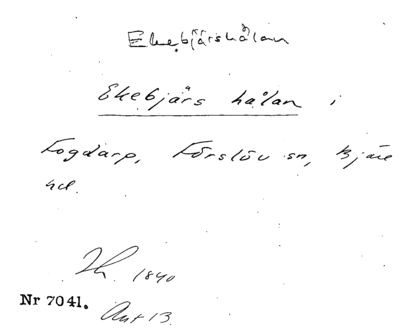 Ekebjärshålan
Ekebjärs hålan i
Fogdarp, Förslöv sn, Bjäre
hd.
1840
Nr 7041.
Ant 13